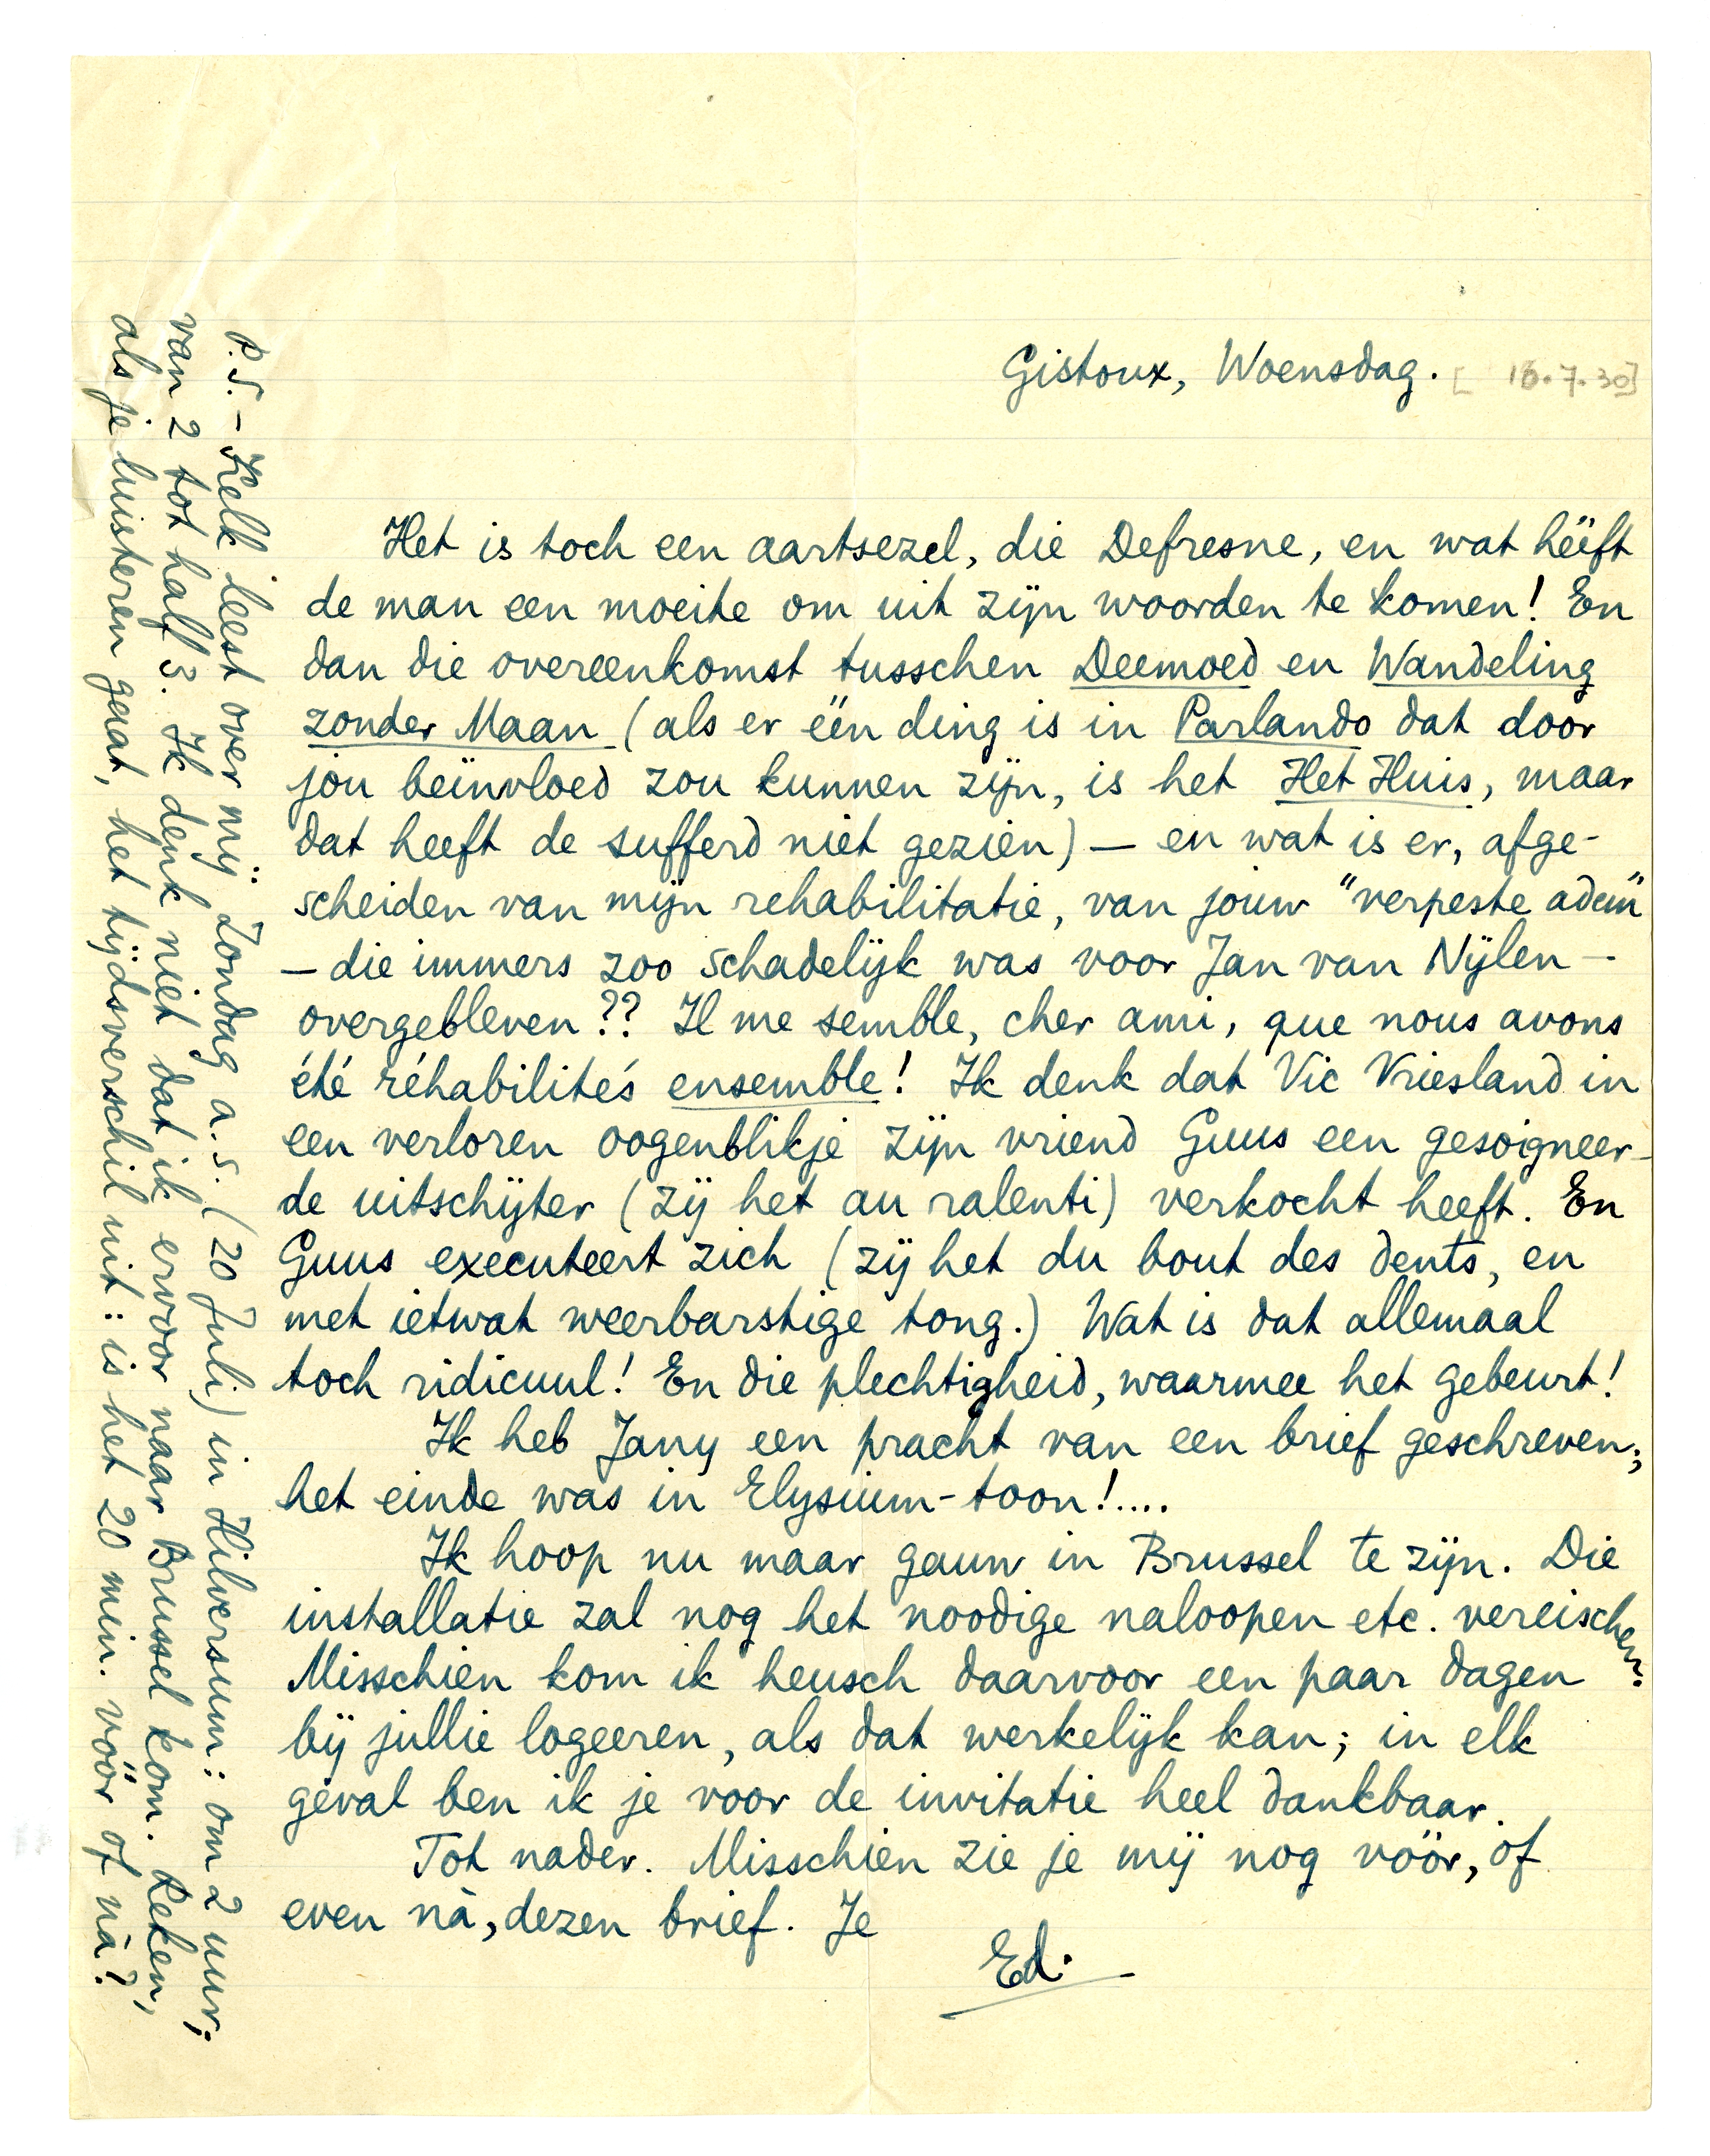 Gistoux, Woensdag. [16.7.30]
Het is toch een aartsezel, die Defresne, en wat hééft
de man een moeite om uit zijn woorden te komen! En
dan die overeenkomst tusschen Deemoed en Wandeling
zonder Maan (als er één ding is in Parlando dat door
jóu beïnvloed zou kunnen zijn, is het Het Huis, maar
dat heeft de sufferd niet gezien) — en wat is er, afge-
scheiden van mijn rehabilitatie, van jouw "verpeste adem"
— die immers zoo schadelijk was voor Jan van Nijlen —
overgebleven?? Il me semble, cher ami, que nous avons
été réhabilités ensemble! Ik denk dat Vic Vriesland in
een verloren oogenblikje zijn vriend Guus een gesoigneer-
de uitschijter (zij het au ralenti) verkocht heeft. En
Guus executeert zich (zij het du bout des dents, en
met ietwat weerbarstige tong.) Wat is dat allemaal
toch ridicuul! En die plechtigheid, waarmee het gebeurt!
Ik heb Jany een pracht van een brief geschreven;
het einde was in Elysium-toon!....
Ik hoop nu maar gauw in Brussel te zijn. Die
installatie zal nog het noodige naloopen etc. vereischen.
Misschien kom ik heusch daarvoor een paar dagen
bij jullie logeeren, als dat werkelijk kan; in elk
geval ben ik je voor de invitatie heel dankbaar.
Tot nader. Misschien zie je mij nog vóór, of
even nà, dezen brief. Je
Ed.
P.S. – Kelk leest over mij: Zondag a.s. (20 Juli) in Hilversum: om 2 uur;
van 2 tot half 3. Ik denk niet dat ik ervoor naar Brussel kom. Reken,
als je luisteren gaat, het tijdsverschil uit: is het 20 min. vóór of nà?